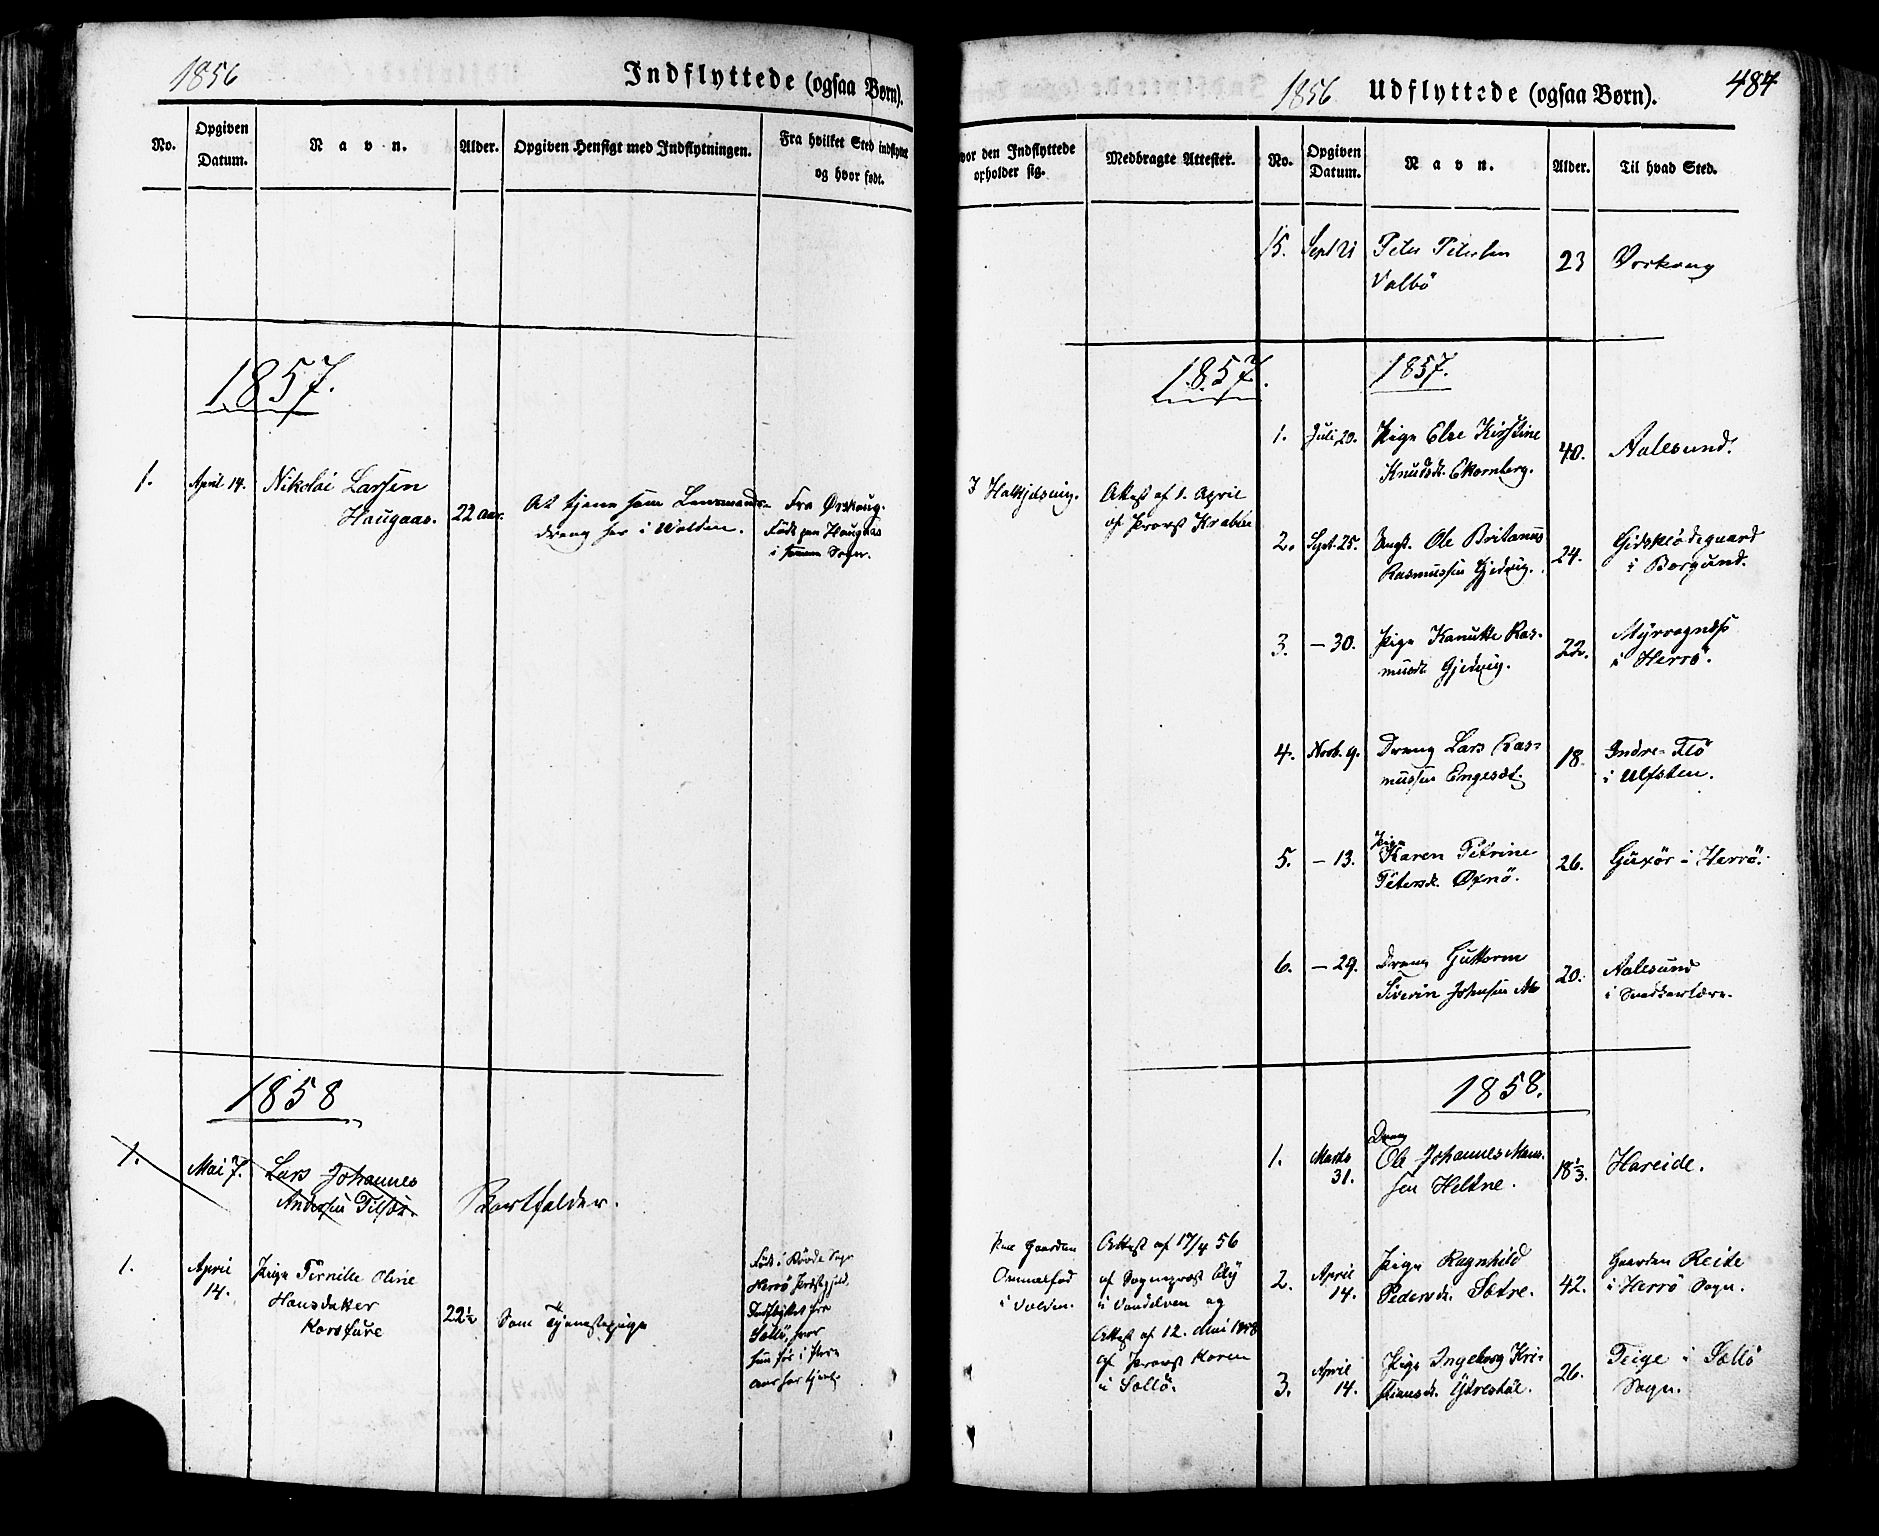 1856
Indflyttede (ogsaa Børn).
No.
Opgiven
Datum.
Navn.
Alder.
Opgiven Hensigt med Indflytningen.
Fra hvilket Sted indflyttet
og hvor født.
1857.
1.
April 14.
Nikolai Larsen
Haugaas.
22 Aar.
At tjene som Lensmands-
dreng her i Volden.
Fra Ørskoug.
Født paa Haugaas
i Sogn.
1858
1.
Mai 7.
Lars Johannes
Andersen
Bortfalder.
1.
April
14.
Pige Pernille Oline
Hansdatter
22½
Som Tjenestepige
Født i Sogn
Herrö Præstgjeld.
Indflyttet fra
hvor
hun før i
aar har tjent.
1856
Udflyttede (ogsaa Børn).
484
vor den Indflyttede
opholder sig.
Medbragte Attester.
No.
Opgiven
Datum.
Navn.
Alder.
Til hvad Sted.
15.
Sept 21
Peter Petersen
Valbö
23
Örskoug
1857.
1857.
I Halkjelsvig.
Attest af 1. April
af Provst Krabbe
1.
Juli 20.
Pige Else Kirstine
Knudsdt. Ekornberg.
40.
Aalesund.
2.
Sept. 25.
Ungk. Ole Britanus
Rasmussen Gjedvig.
24.
Gidskeödegaard
i Borgund.
3.
– 30.
Pige Kanutte Ras-
musdt. Gjedvig.
22.
i Herrö.
4.
Novb. 9.
Dreng Lars Ras-
mussen Engeset.
18
Indre-Flö
i Ulfsten.
5.
– 13.
Pige
Karen Petrine
Petersdt. Öxnö.
26.
Gurör i Herrö.
6.
– 29.
Dreng Guttorm
Siverin Johnsen Aa
20.
Aalesund
i Snedkerlære.
1858.
1.
Marts
31.
Dreng
Ole Johannes Mons-
sen Heltne.
18⅓.
Hareide.
Paa Gaarden
i Volden.
Attest af 17/4 56
af Sogneprest Aly
i Vandelven og
Attest af 12. Mai 1858
af Provst Koren
i Sællö.
2.
April
14.
Pige Ragnhild
Pedersdt. Sætre.
42.
Gaarden Reite
i Herrö Sogn.
3.
April
14.
Pige Ingeborg Kri-
stiansdt. Ytrestöl.
26.
Teige i Sællö
Sogn.